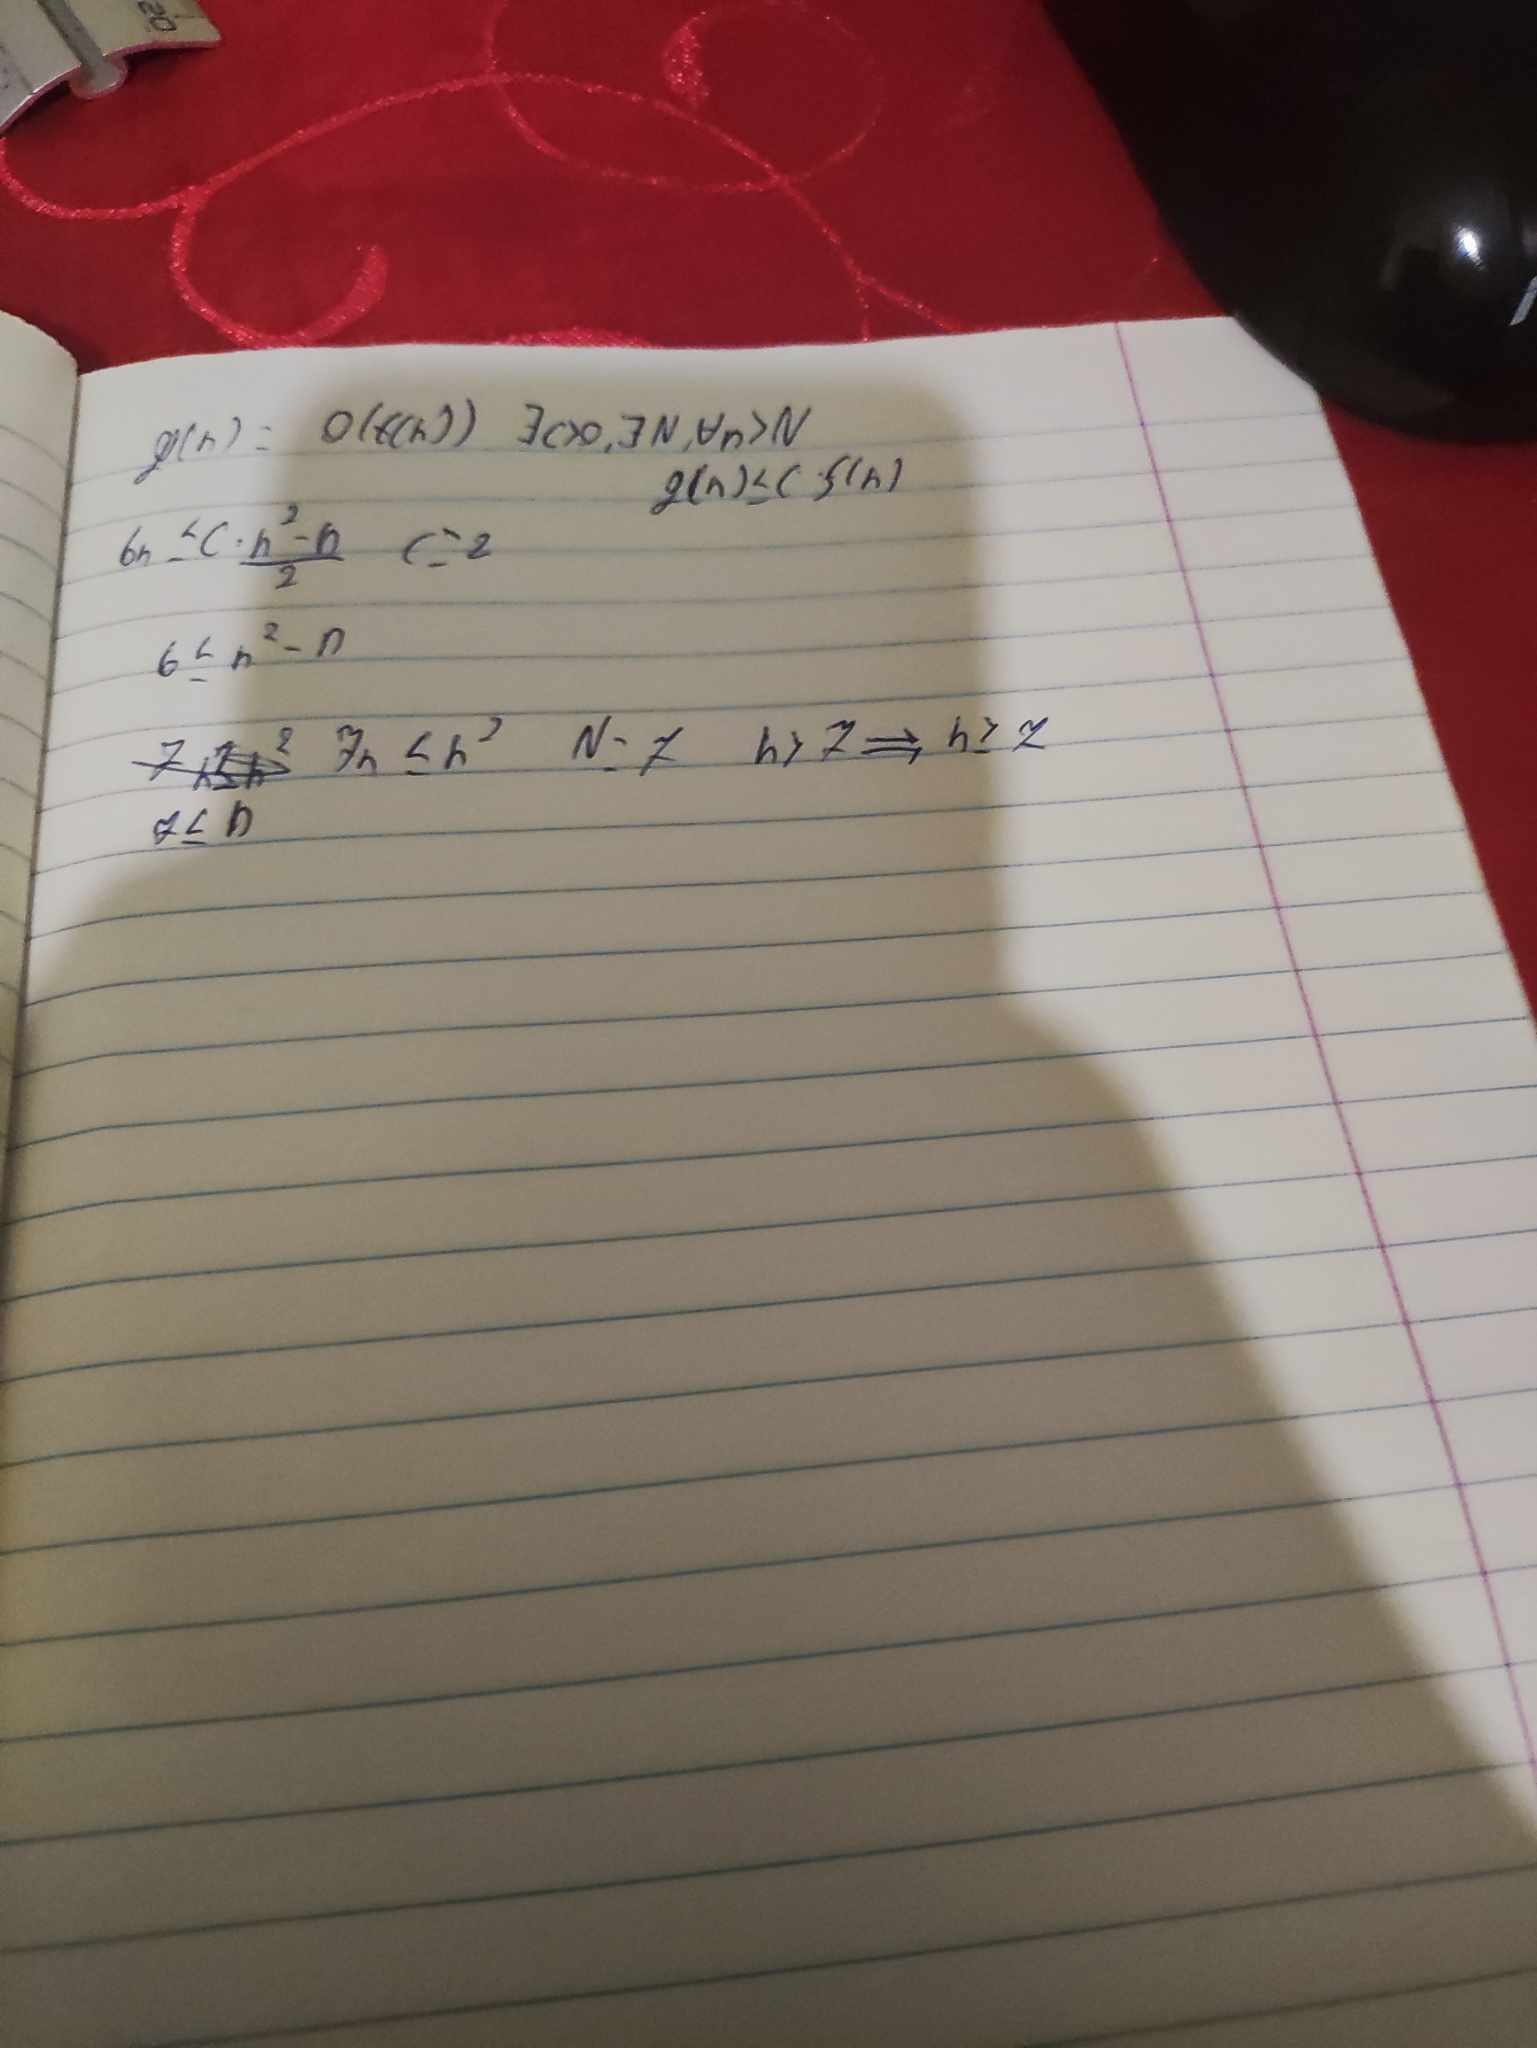 20
g(n) = O(f(n)) ∃c>0, ∃N, ∀n>N
g(n) ≤ C·f(n)
6n ≤ C·(n²-n)/2 C=2
6 ≤ n² - n
7n ≤ n² N=7 n>7 ⟹ n≥7
7 ≤ n